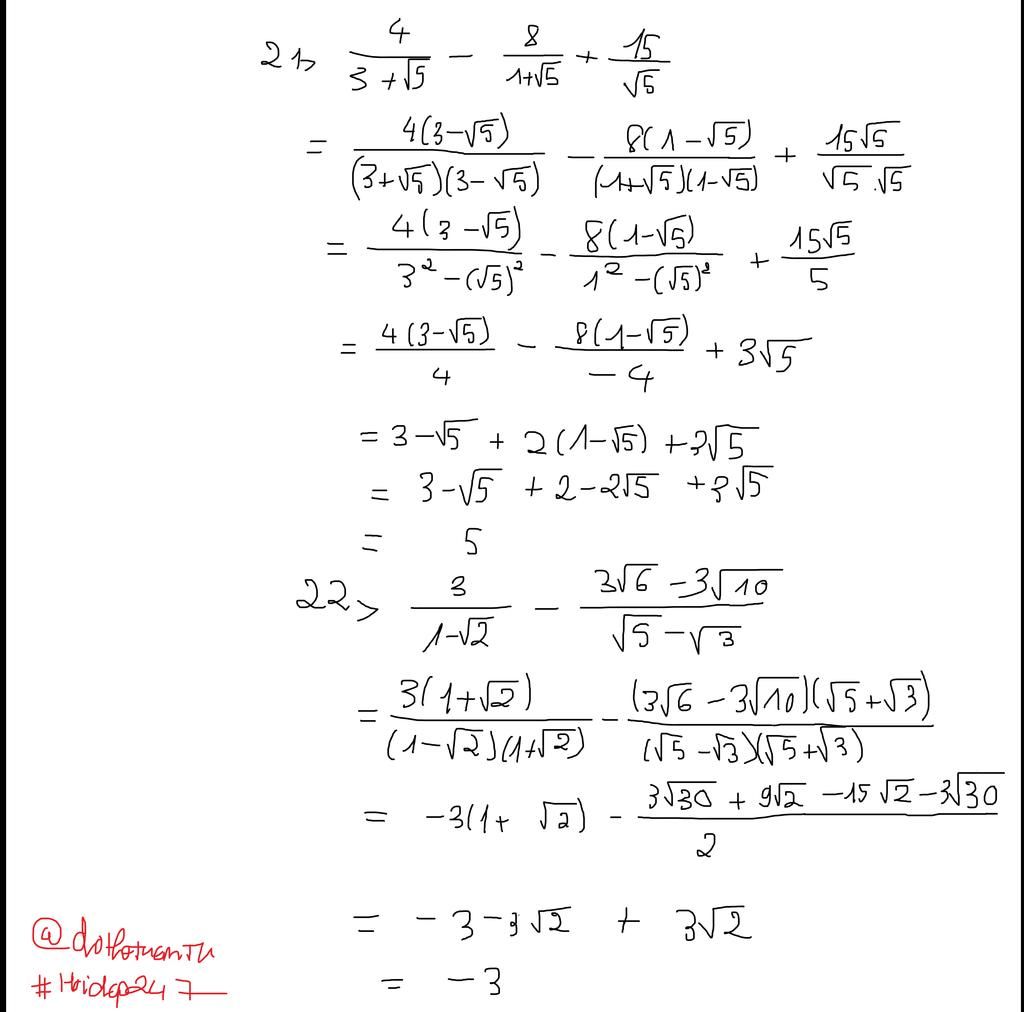 21> 4/(3+√5) − 8/(1+√5) + 15/√5
= 4(3−√5)/((3+√5)(3−√5)) − 8(1−√5)/((1+√5)(1−√5)) + 15√5/(√5.√5)
= 4(3−√5)/(3²−(√5)²) − 8(1−√5)/(1²−(√5)²) + 15√5/5
= 4(3−√5)/4 − 8(1−√5)/−4 + 3√5
= 3−√5 + 2(1−√5) + 3√5
= 3−√5 + 2−2√5 + 3√5
= 5
22> 3/(1−√2) − (3√6−3√10)/(√5−√3)
= 3(1+√2)/((1−√2)(1+√2)) − (3√6−3√10)(√5+√3)/((√5−√3)(√5+√3))
= −3(1+√2) − (3√30+9√2−15√2−3√30)/2
= −3−3√2 + 3√2
= −3